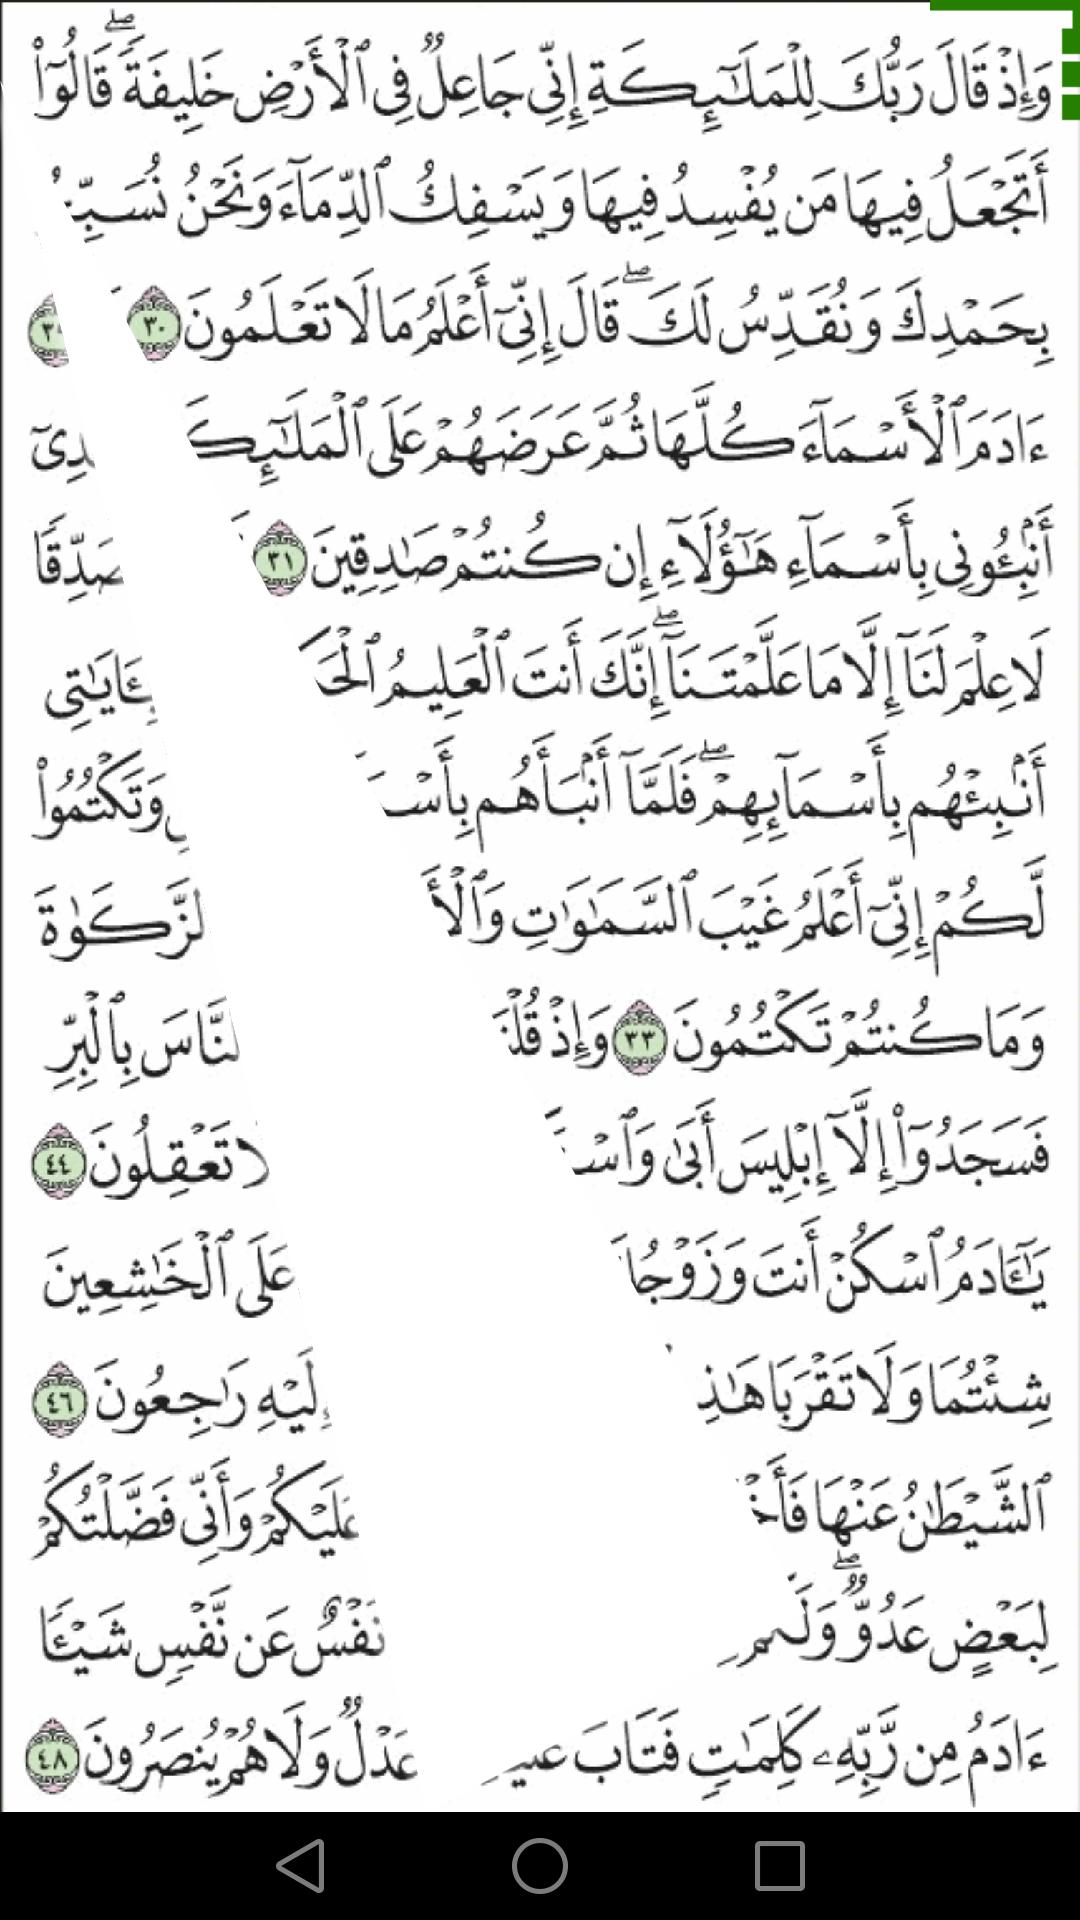 وَإِذْ قَالَ رَبُّكَ لِلْمَلَٰٓئِكَةِ إِنِّي جَاعِلٌ فِي ٱلْأَرْضِ خَلِيفَةً ۖ قَالُوٓا۟
أَتَجْعَلُ فِيهَا مَن يُفْسِدُ فِيهَا وَيَسْفِكُ ٱلدِّمَآءَ وَنَحْنُ
بِحَمْدِكَ وَنُقَدِّسُ لَكَ ۖ قَالَ إِنِّيٓ أَعْلَمُ مَا لَا تَعْلَمُونَ ٣٠
ءَادَمَ ٱلْأَسْمَآءَ كُلَّهَا ثُمَّ عَرَضَهُمْ عَلَى
أَنۢبِـُٔونِي بِأَسْمَآءِ هَٰٓؤُلَآءِ إِن كُنتُمْ صَٰدِقِينَ ٣١
لَا عِلْمَ لَنَآ إِلَّا مَا عَلَّمْتَنَآ ۖ إِنَّكَ أَنتَ ٱلْعَلِيمُ
أَنۢبِئْهُم بِأَسْمَآئِهِمْ ۖ فَلَمَّآ أَنۢبَأَهُم وَتَكْتُمُوا۟
لَّكُمْ إِنِّيٓ أَعْلَمُ غَيْبَ ٱلسَّمَٰوَٰتِ
وَمَا كُنتُمْ تَكْتُمُونَ ٣٣ وَإِذْ بِٱلْبِرِّ
فَسَجَدُوٓا۟ إِلَّآ إِبْلِيسَ أَبَىٰ تَعْقِلُونَ ٤٤
يَٰٓـَٔادَمُ ٱسْكُنْ أَنتَ عَلَى ٱلْخَٰشِعِينَ
شِئْتُمَا وَلَا تَقْرَبَا رَٰجِعُونَ ٤٦
ٱلشَّيْطَٰنُ عَنْهَا عَلَيْكُمْ وَأَنِّي فَضَّلْتُكُمْ
لِبَعْضٍ عَدُوٌّ ۖ نَفْسٌ عَن نَّفْسٍ شَيْـًٔا
ءَادَمُ مِن رَّبِّهِۦ كَلِمَٰتٍ فَتَابَ عَدْلٌ وَلَا هُمْ يُنصَرُونَ ٤٨